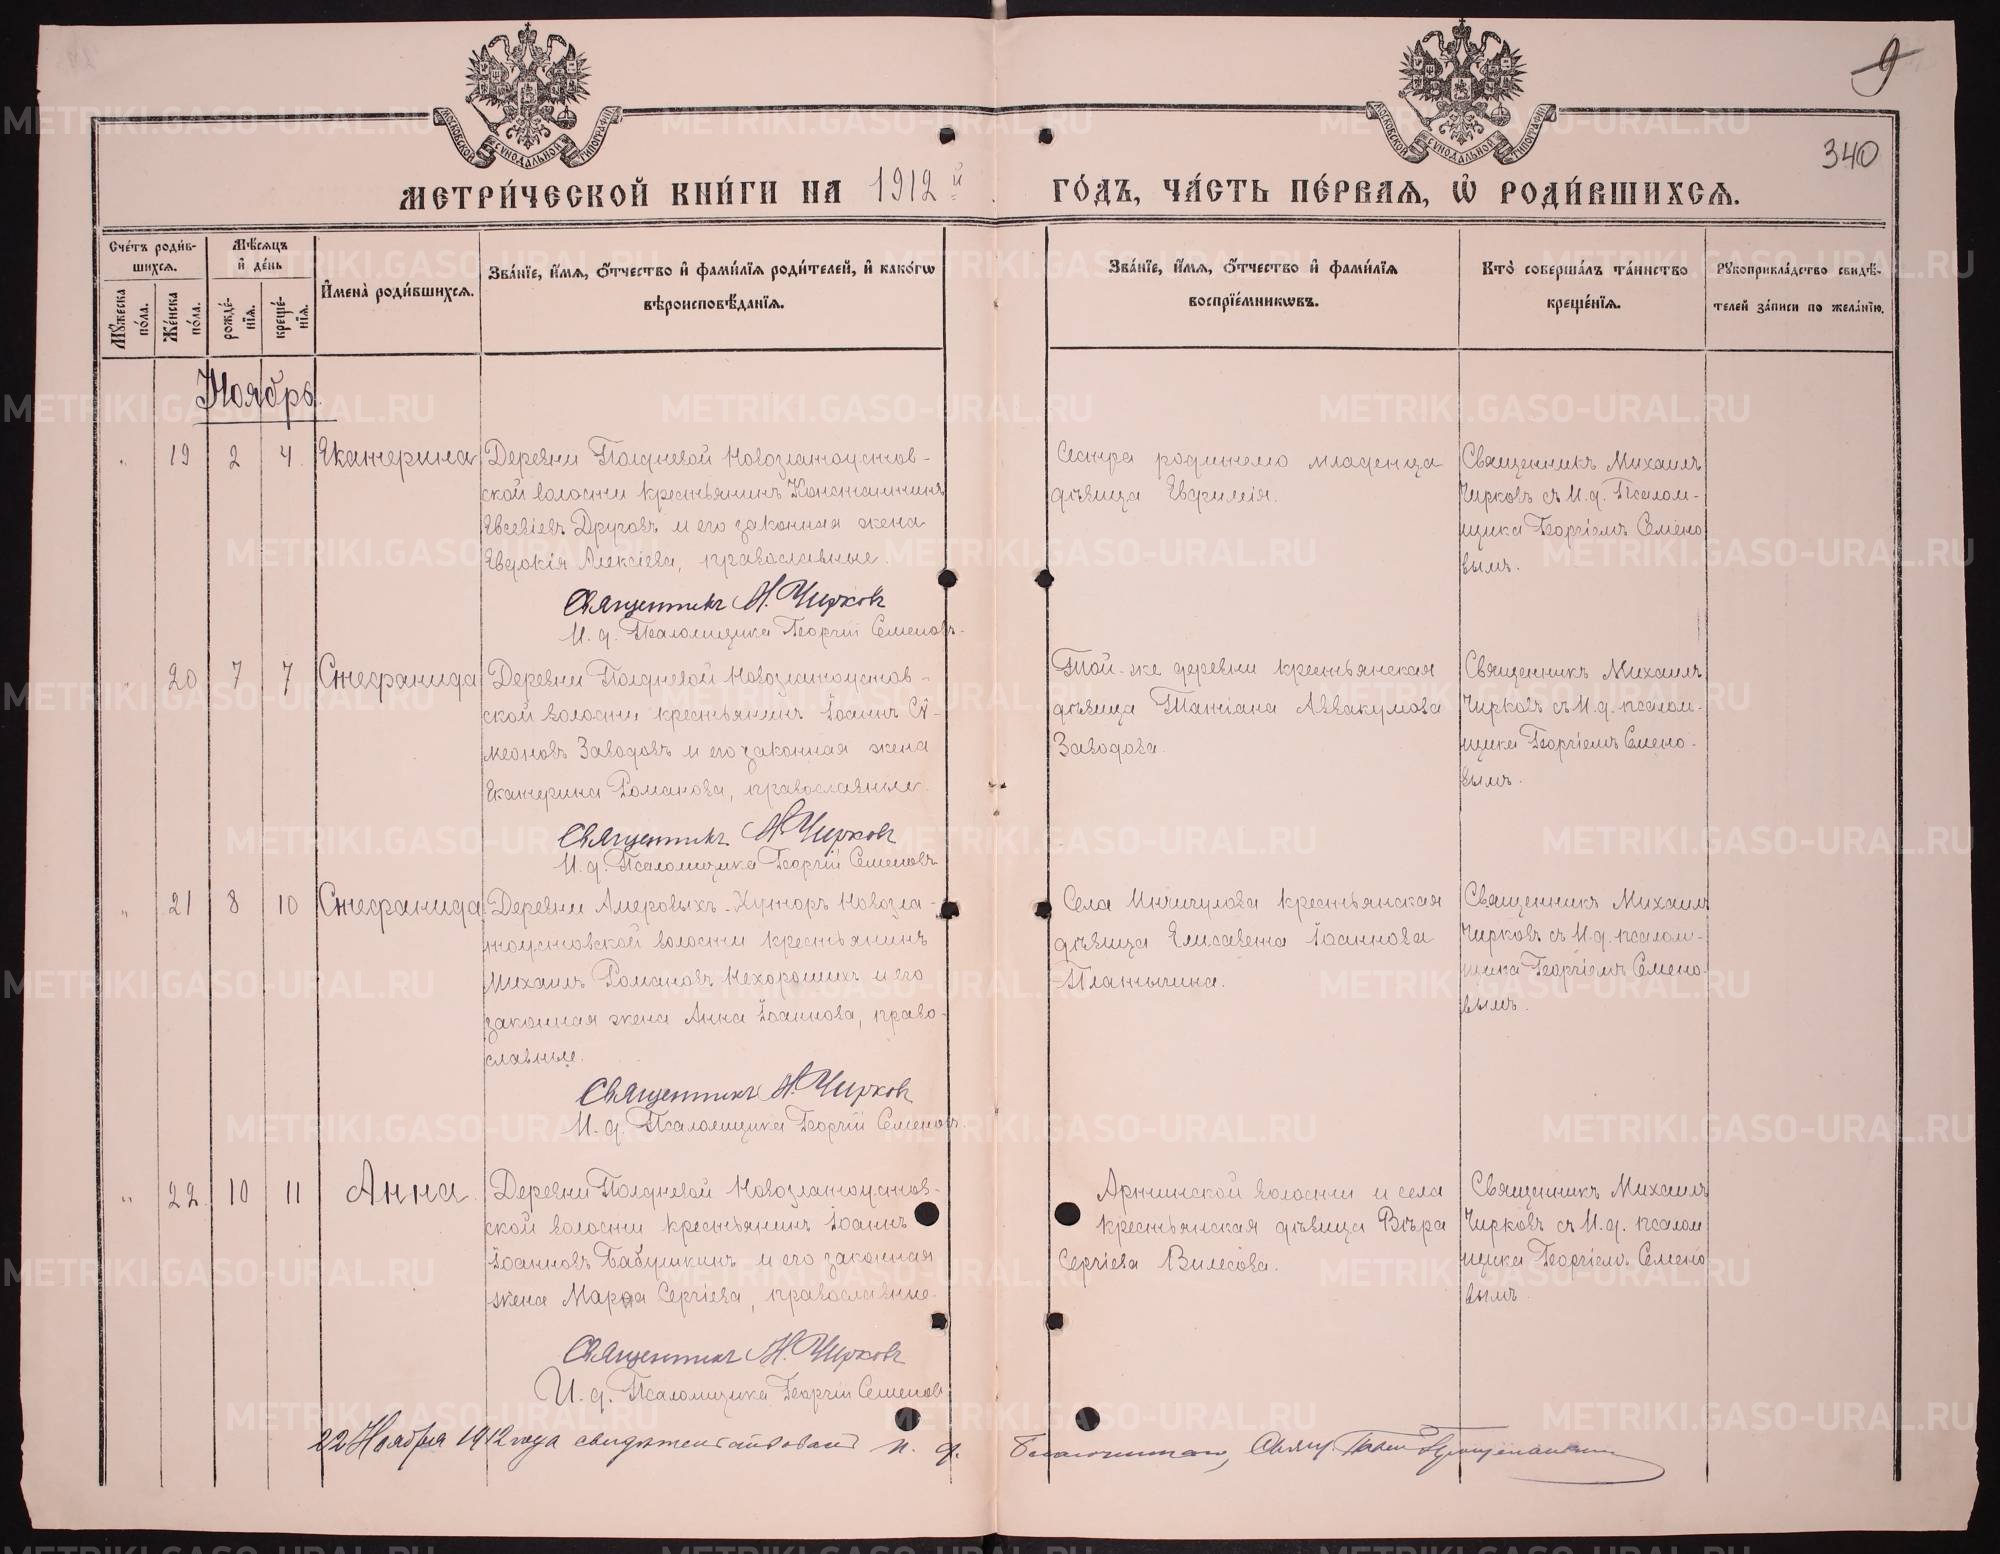 9
340
МОСКОВСКОЙ СѴНОДАЛЬНОЙ ТИПОГРАФІИ
МОСКОВСКОЙ СѴНОДАЛЬНОЙ ТИПОГРАФІИ
МЕТРИ́ЧЕСКОЙ КНИ́ГИ НА 1912й ГО́ДЪ, ЧА́СТЬ ПЕ́РВАѦ, Ѡ҆ РОДИ́ВШИХСѦ.
Сче́тъ роди́в-
шихсѧ.
Мѣ́сѧцъ
и҆ де́нь
Мꙋ́жеска по́ла.
Же́нска по́ла.
рожде́-
нїѧ.
креще́-
нїѧ.
И҆мена̀ роди́вшихсѧ.
Зва́нїе, и҆́мѧ, ѻ҆́тчество и҆ фами́лїѧ роди́телей, и҆ како́гѡ
вѣроисповѣ́данїѧ.
Зва́нїе, и҆́мѧ, ѻ҆́тчество и҆ фами́лїѧ
воспрїе́мникѡвъ.
Кто̀ соверша́лъ та́инство
креще́нїѧ.
Рꙋкоприкла́дство свидѣ́-
телей за́писи по жела́нїю.
Ноябрь
" 19 2 4 Екатерина
Деревни Полдневой Новозлатоустов-
ской волости крестьянинъ Константинъ
Евсевіевъ Друговъ и его законная жена
Евдокія Алексіева, православные.
Священникъ М. Чирковъ
И. д. Псаломщика Георгій Семеновъ.
Сестра родителю младенца
дѣвица Евфимія.
Священникъ Михаилъ
Чирковъ съ И. д. Псалом-
щика Георгіемъ Семено
вымъ.
" 20 7 7 Стефанида
Деревни Полдневой Новозлатоустов-
ской волости крестьянинъ Іоаннъ Сѵ-
меоновъ Заводовъ и его законная жена
Екатерина Романова, православные.
Священникъ М. Чирковъ
И. д. Псаломщика Георгій Семеновъ
Той-же деревни крестьянская
дѣвица Татіана Аввакумова
Заводова.
Священникъ Михаилъ
Чирковъ съ И. д. псалом-
щика Георгіемъ Семено-
вымъ.
" 21 8 10 Стефанида
Деревни Амеровыхъ-Хуторъ Новозла-
тоустовской волости крестьянинъ
Михаилъ Романовъ Нехорошихъ и его
законная жена Анна Іоаннова, право-
славные.
Священникъ М. Чирковъ
И. д. Псаломщика Георгій Семеновъ.
Села крестьянская
дѣвица Елисавета Іоаннова
Платыгина.
Священникъ Михаилъ
Чирковъ съ И. д. псалом-
щика Георгіемъ Семено-
вымъ.
" 22. 10 11 Анна
Деревни Полдневой Новозлатоустов-
ской волости крестьянинъ Іоаннъ
Іоанновъ Бабушкинъ и его законная
жена Марѳа Сергіева, православные.
Священникъ М. Чирковъ
И. д. Псаломщика Георгій Семеновъ
Артинской волости и села
крестьянская дѣвица Вѣра
Сергіева Вилесова.
Священникъ Михаилъ
Чирковъ съ И. д. псалом
щика Георгіемъ Семено
вымъ.
22 Ноября 1912 года свидѣтельствовалъ и. д. Благочиннаго, Свящ.
METRIKI.GASO-URAL.RU